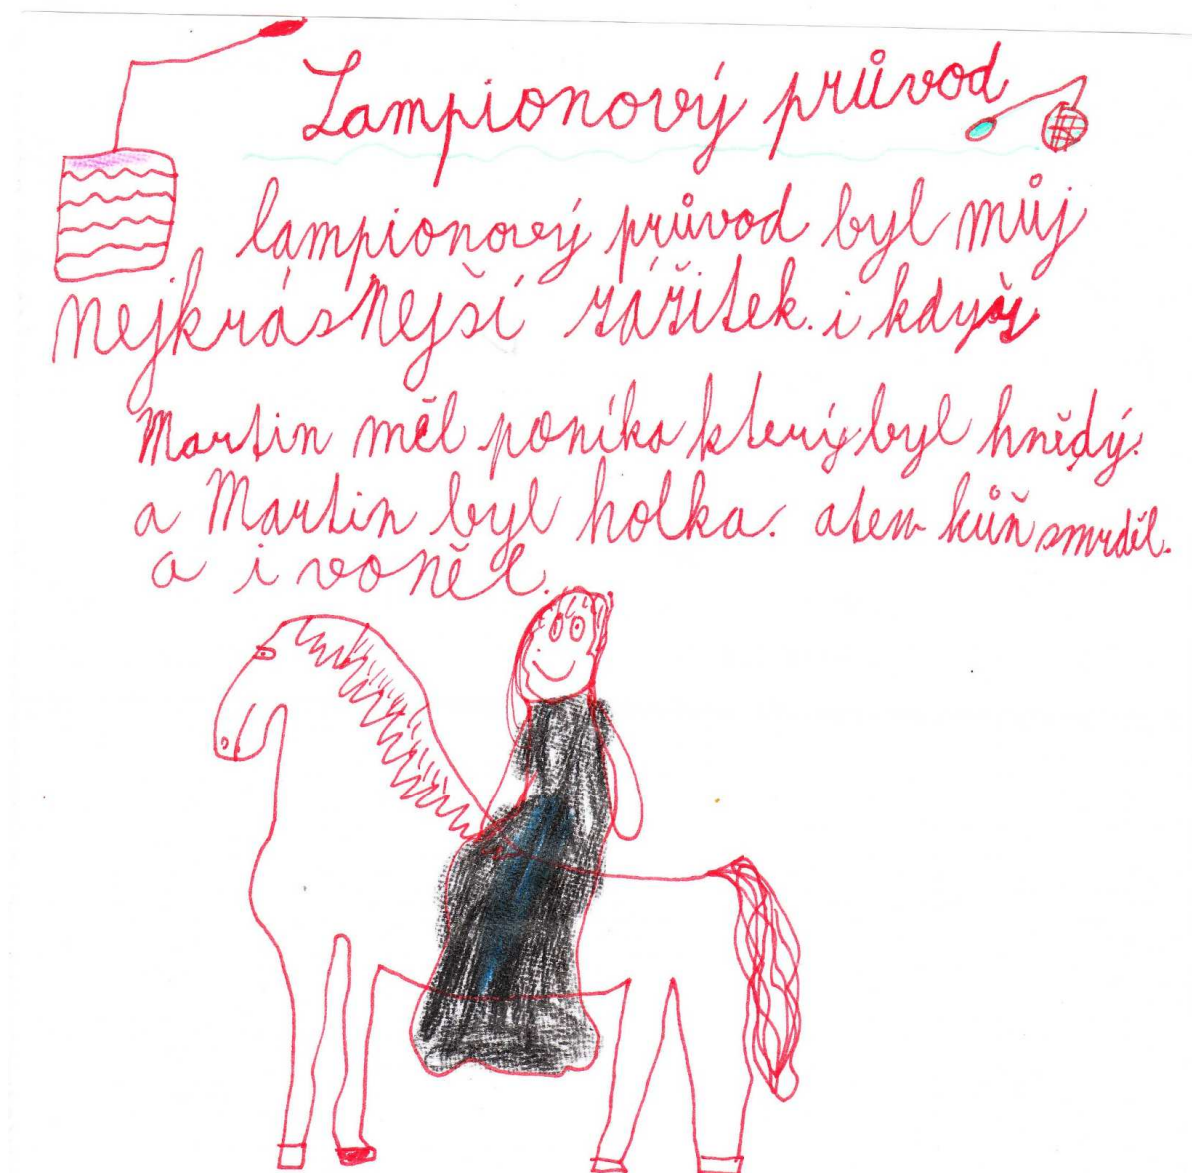 Lampionový průvod
lampionový průvod byl můj
nejkrásnejší zážitek. i když
Martin měl poníka který byl hnědý.
a Martin byl holka. aten kůň smrděl.
a i voněl.